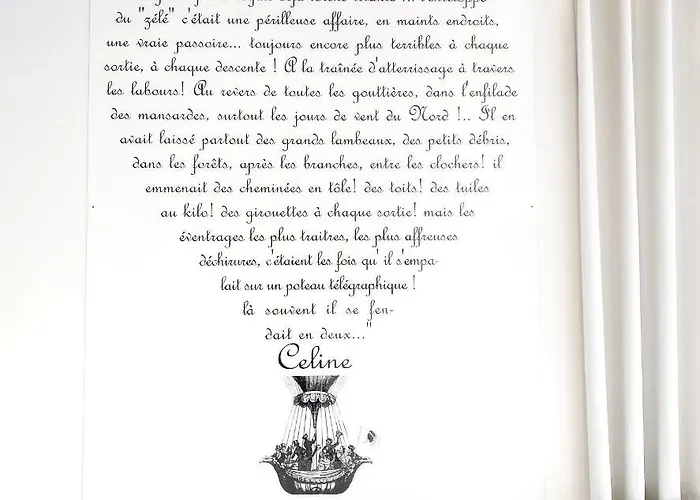 du "zélé" c'était une périlleuse affaire, en maints endroits,
une vraie passoire... toujours encore plus terribles à chaque
sortie, à chaque descente ! A la traînée d'atterrissage à travers
les labours! Au revers de toutes les gouttières, dans l'enfilade
des mansardes, surtout les jours de vent du Nord !.. Il en
avait laissé partout des grands lambeaux, des petits débris,
dans les forêts, après les branches, entre les clochers! il
emmenait des cheminées en tôle! des toits! des tuiles
au kilo! des girouettes à chaque sortie! mais les
éventrages les plus traitres, les plus affreuses
déchirures, c'étaient les fois qu' il s'empa-
lait sur un poteau télégraphique !
là souvent il se fen-
dait en deux..."
Celine